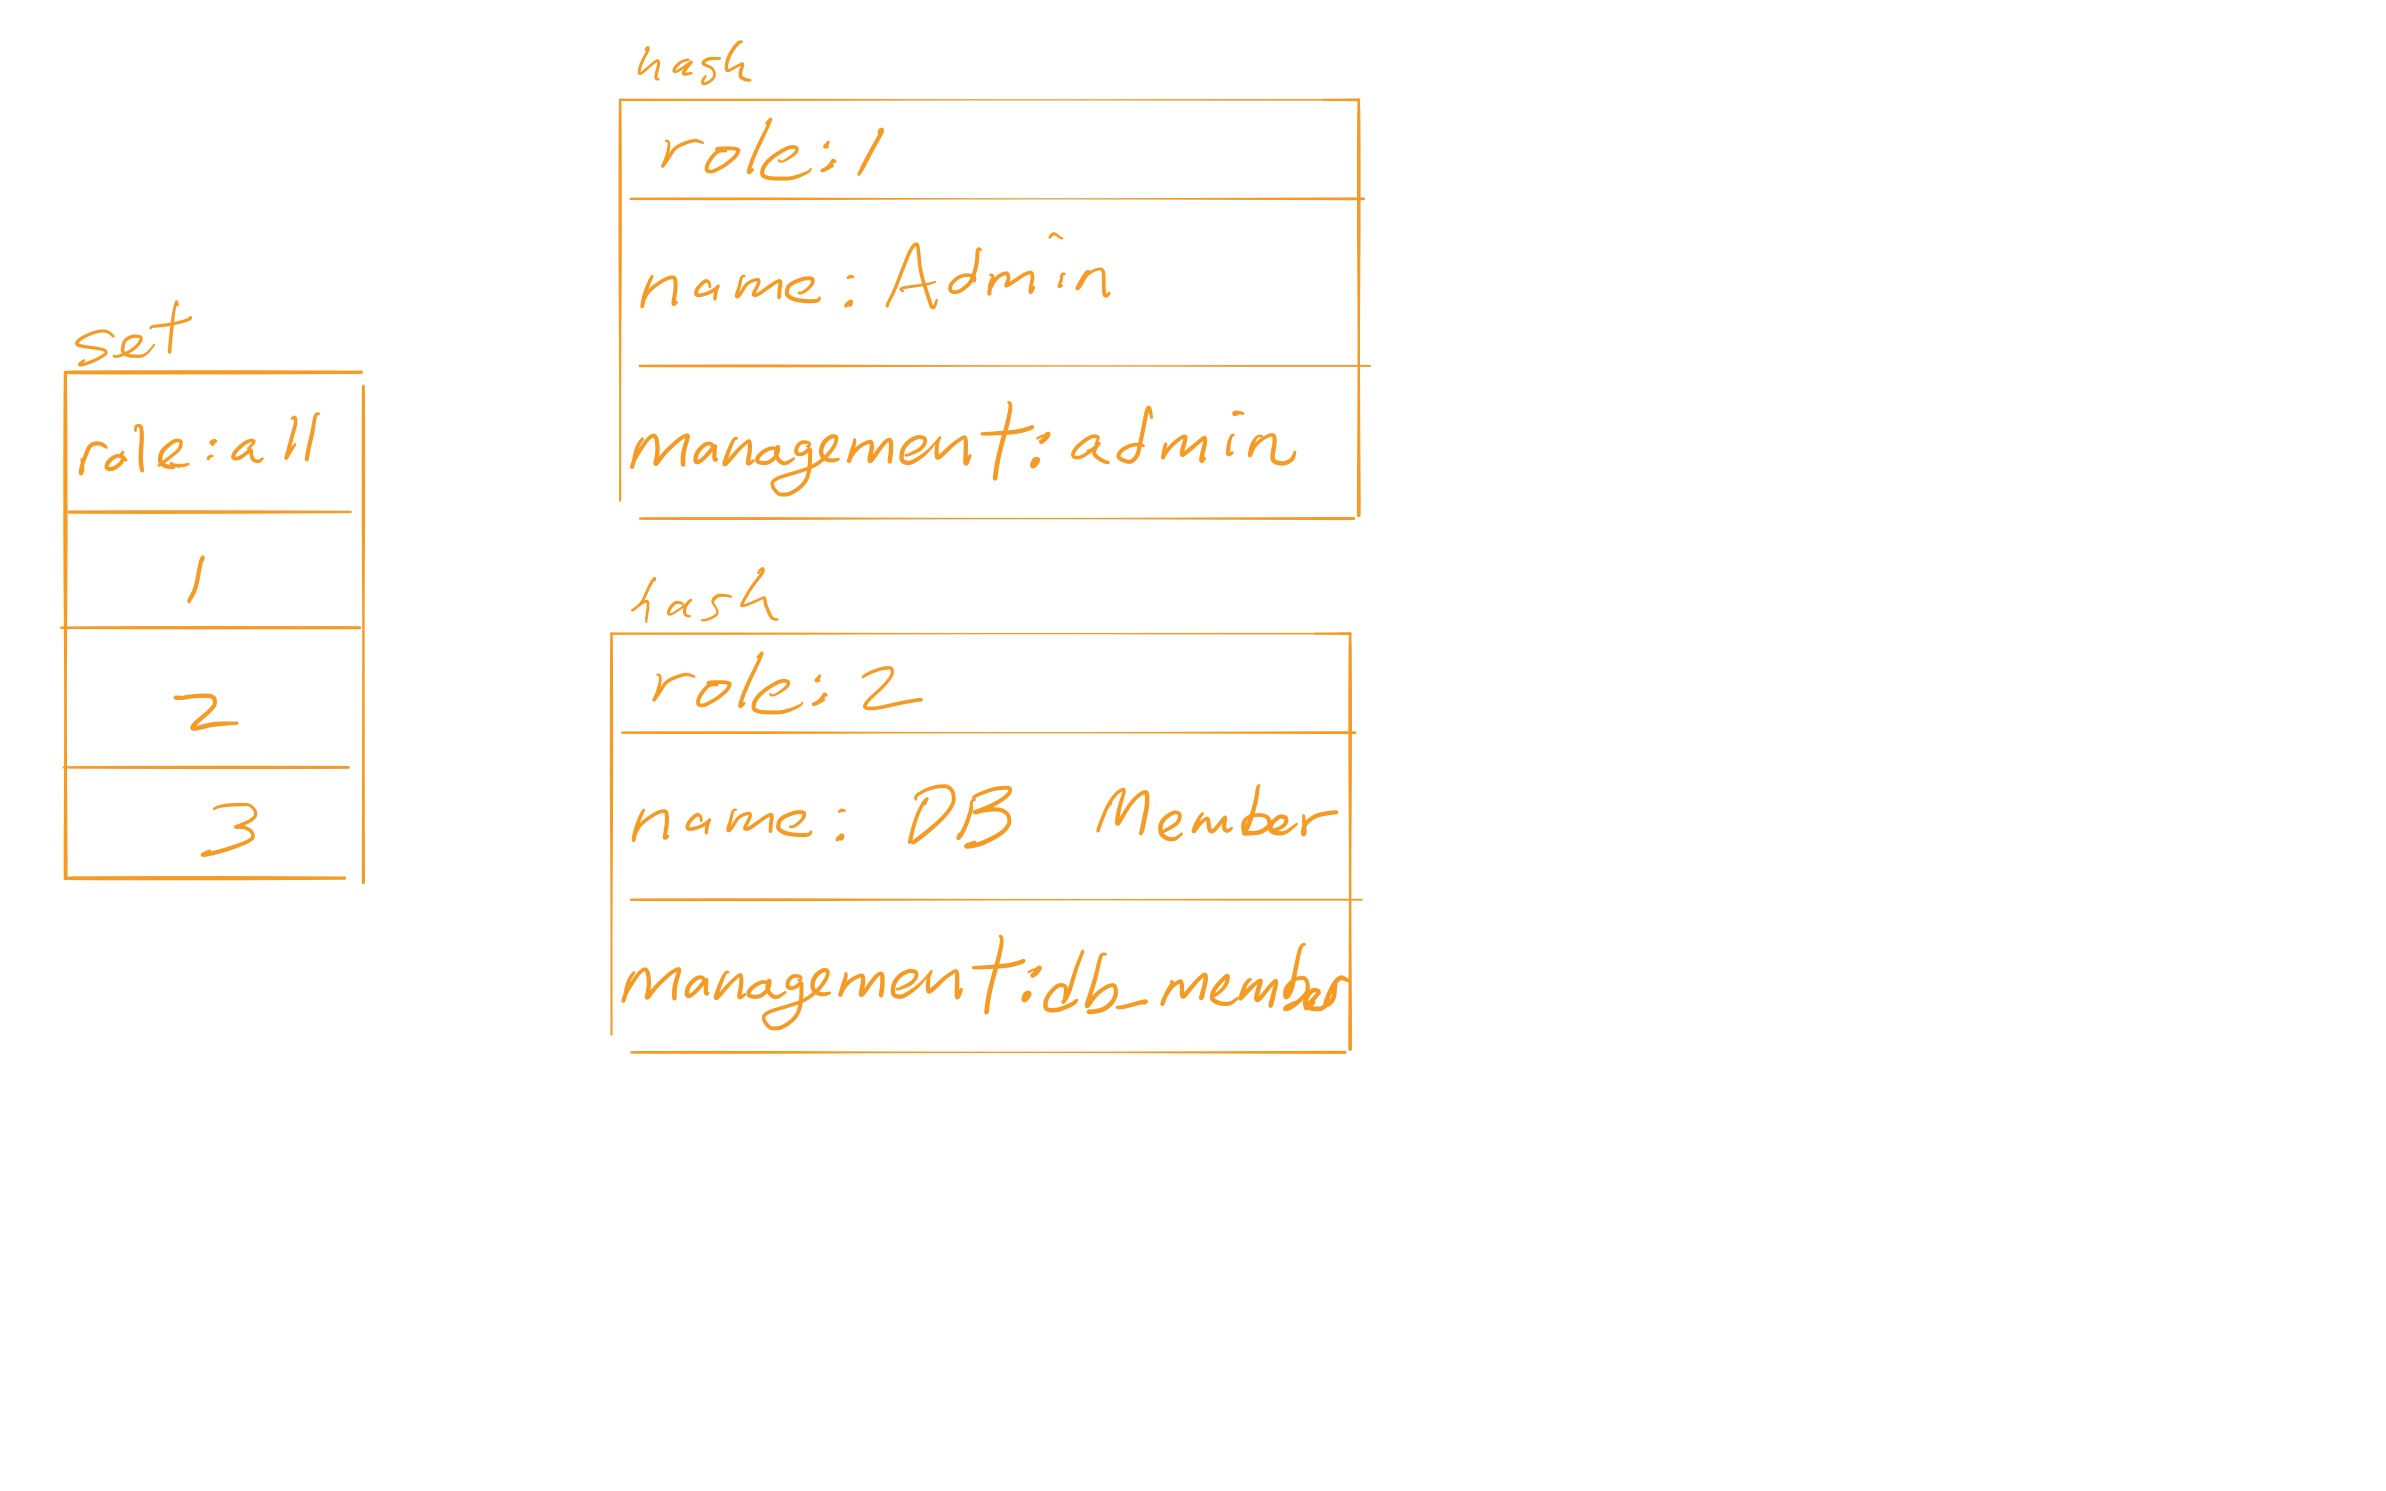 set
role:all
1
2
3
hash
role:1
name:Admin
management:admin
hash
role:2
name: DB Member
management:db_member